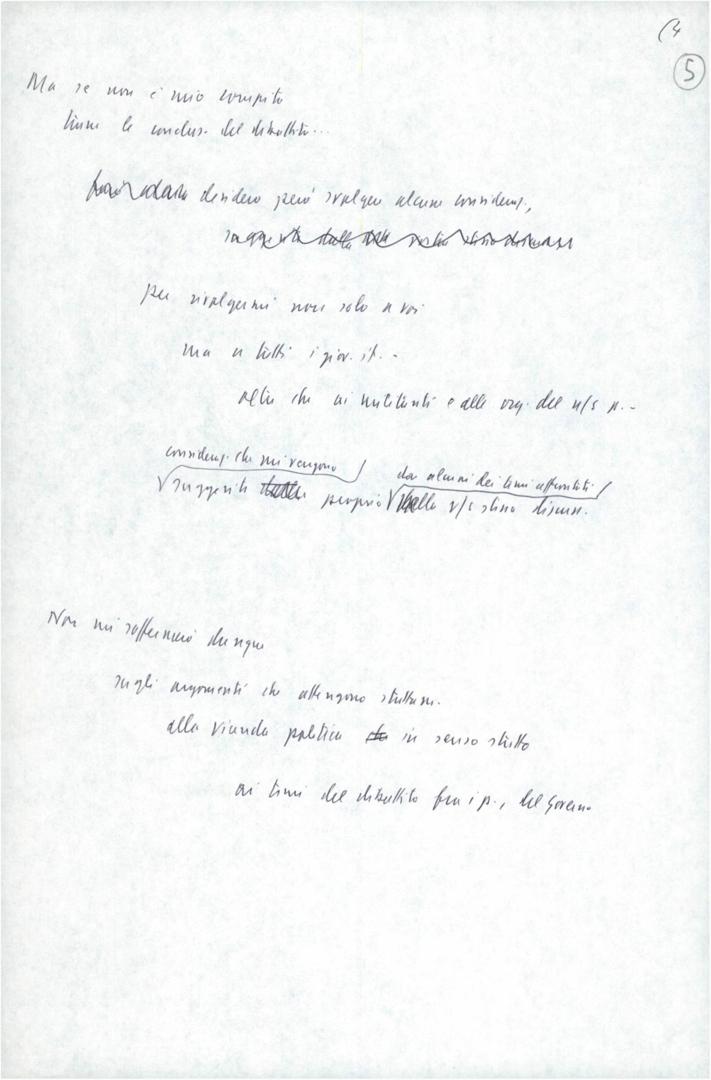 (4
5
Ma se non è mio compito
trarre le conclus. del dibattito...
desidero però svolgere alcune consideraz.,
suggerite dalla dalla vostra stessa discuss
per rivolgermi non solo a voi
ma a tutti i giov. it. -
oltre che ai militanti e alle org. del n/s p. -
consideraz. che mi vengono da alcuni dei temi affrontati
suggerite dalla proprio nella v/s stessa discuss.
Non mi soffermerò dunque
sugli argomenti che attengono strettam.
alla vicenda politica in senso stretto
ai temi del dibattito fra i p., del Governo